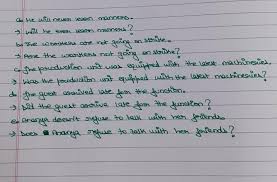 a. He will never learn manners.
→ Will he ever learn manners?
b. The workers are not going on strike.
→ Are the workers not going on strike?
c. The production unit was equipped with the latest machineries.
→ Was the production unit equipped with the latest machineries?
d. The guest arrived late for the function.
→ Did the guest arrive late for the function?
e. Ananya doesn't refuse to talk with her friends.
→ Does Ananya refuse to talk with her friends?